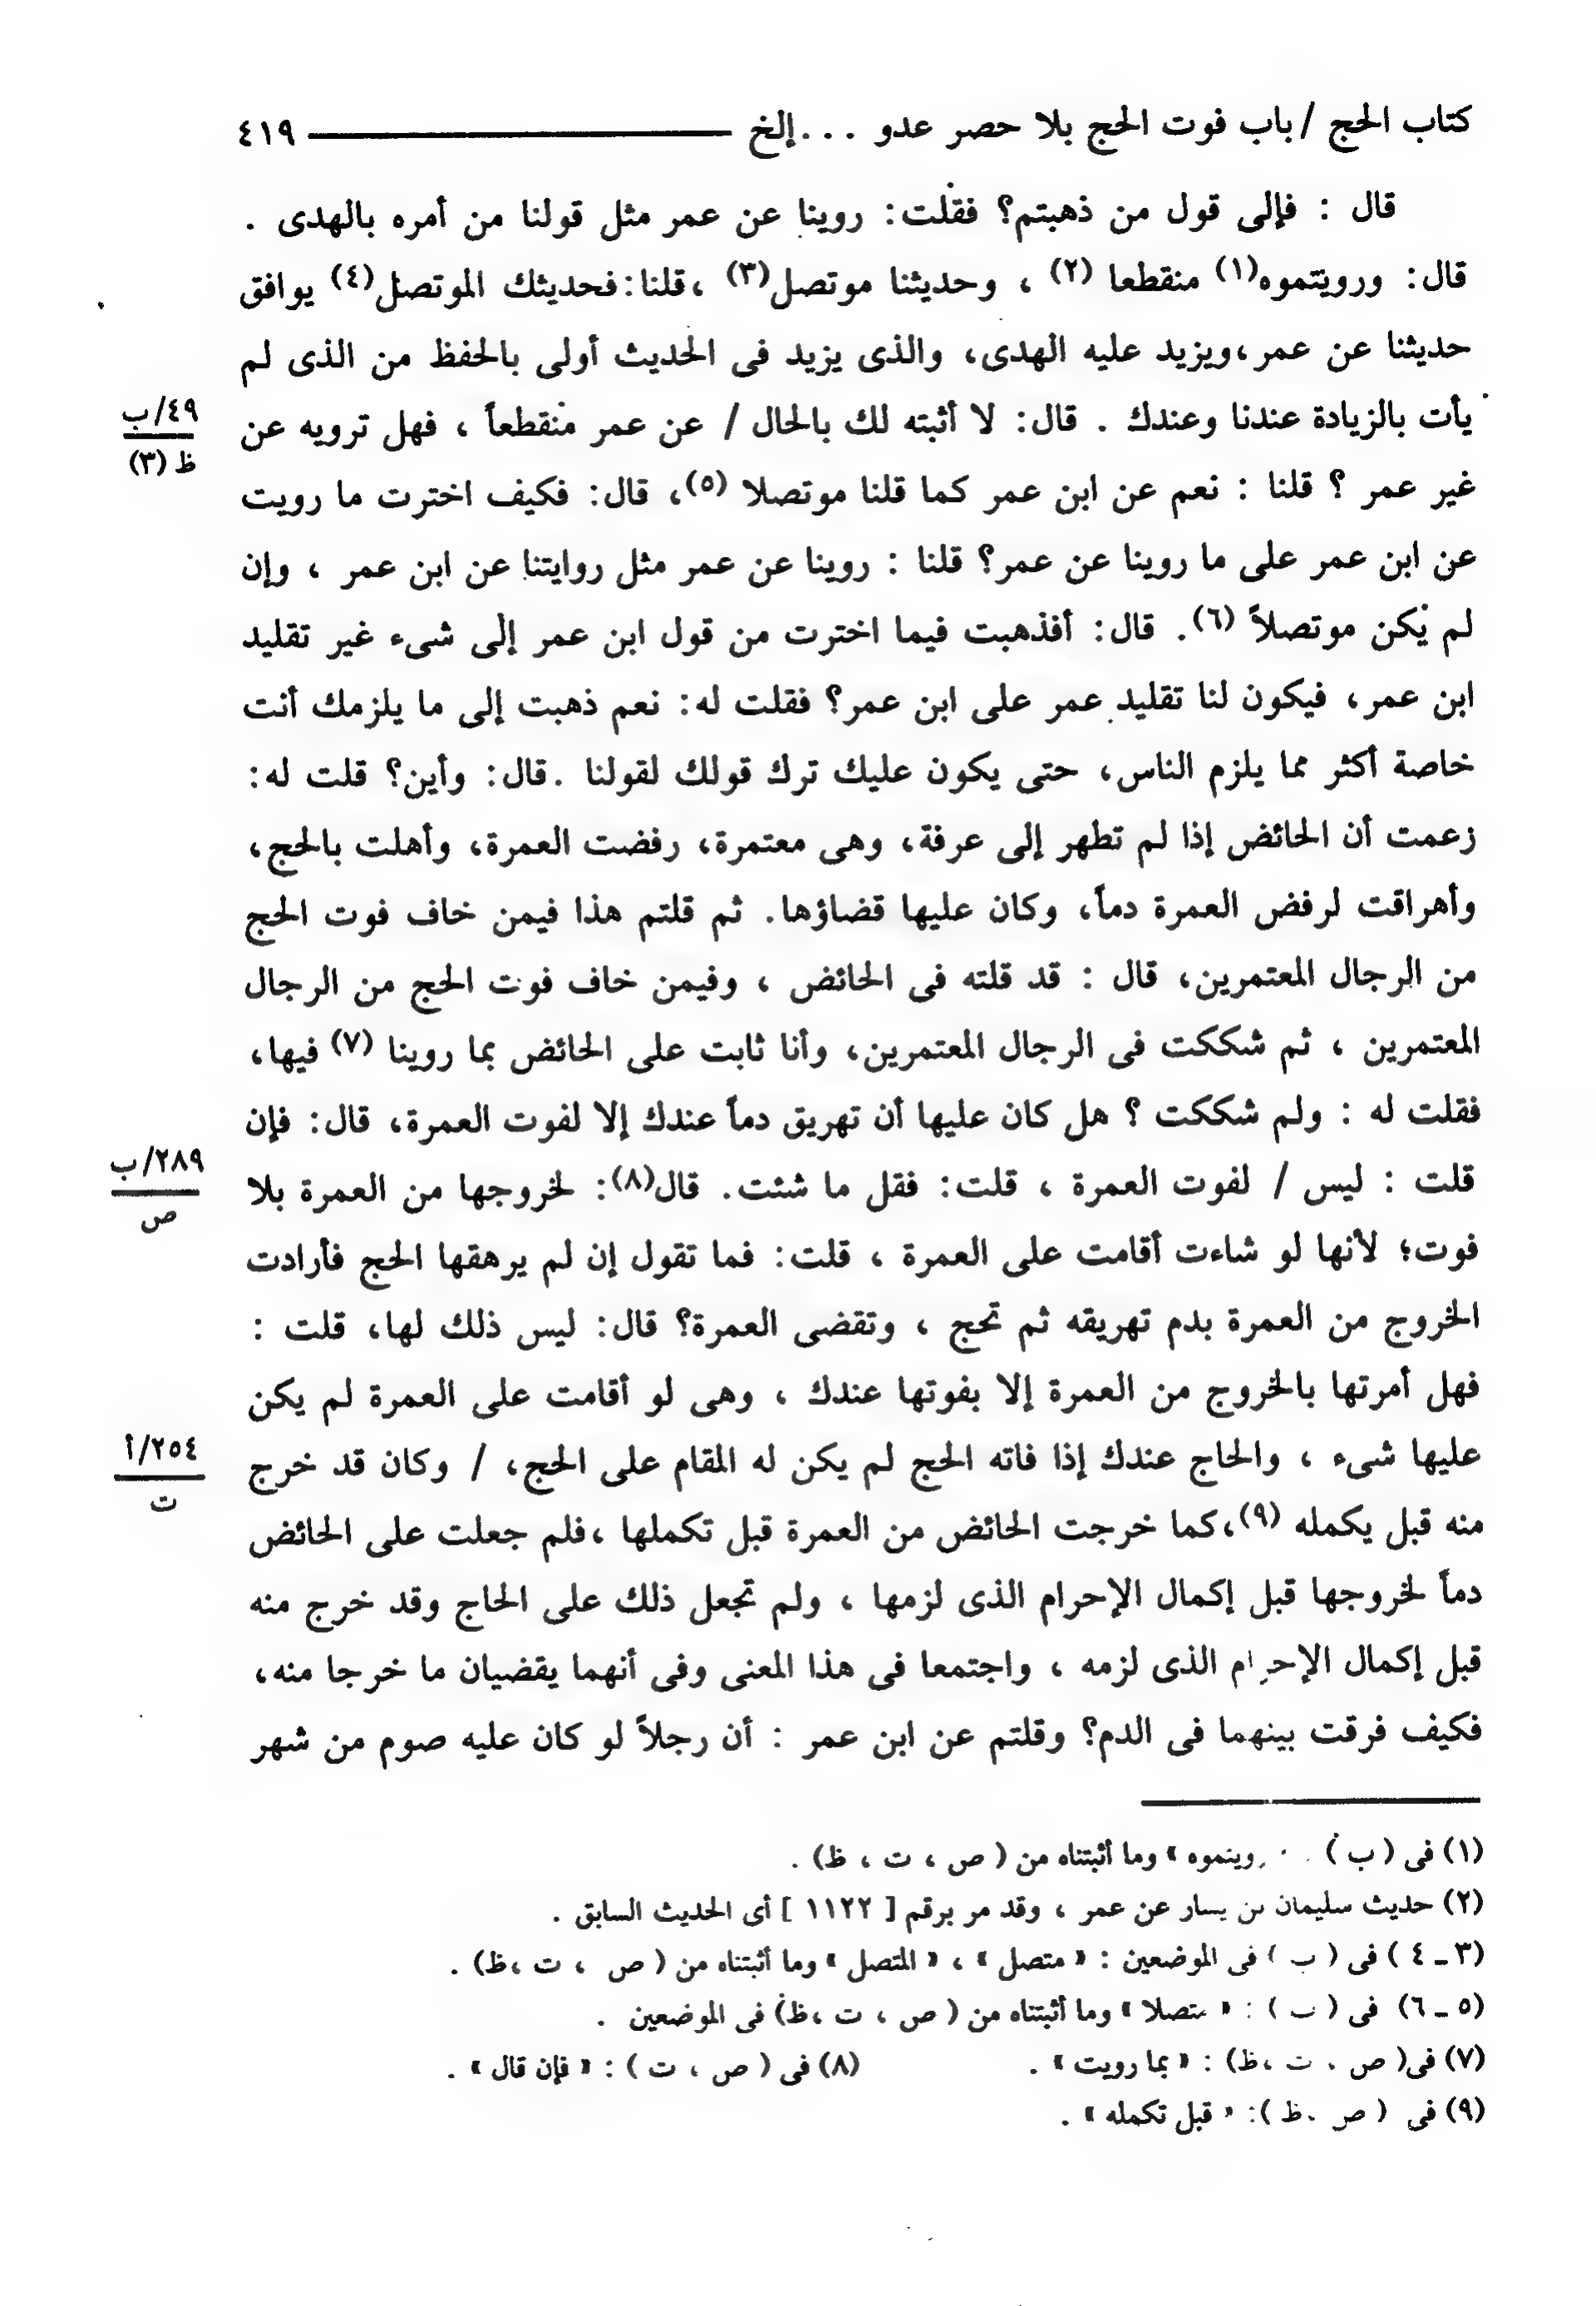 كتاب الحج / باب فوت الحج بلا حصر عدو . . . إلخ ٤١٩
قال : فإلى قول من ذهبتم؟ فقلت: روينا عن عمر مثل قولنا من أمره بالهدى .
قال: ورويتموه(١) منقطعا (٢) ، وحديثنا موتصل(٣) ،قلنا:فحديثك الموتصل(٤) يوافق
حديثنا عن عمر،ويزيد عليه الهدى، والذى يزيد فى الحديث أولى بالحفظ من الذى لم
يأت بالزيادة عندنا وعندك . قال: لا أثبته لك بالحال / عن عمر منقطعاً ، فهل ترويه عن
٤٩/ب
ظ (٣)
غير عمر ؟ قلنا : نعم عن ابن عمر كما قلنا موتصلا (٥)، قال: فكيف اخترت ما رويت
عن ابن عمر على ما روينا عن عمر؟ قلنا : روينا عن عمر مثل روايتنا عن ابن عمر ، وإن
لم يكن موتصلاً (٦). قال: أفذهبت فيما اخترت من قول ابن عمر إلى شىء غير تقليد
ابن عمر، فيكون لنا تقليد عمر على ابن عمر؟ فقلت له: نعم ذهبت إلى ما يلزمك أنت
خاصة أكثر مما يلزم الناس، حتى يكون عليك ترك قولك لقولنا .قال: وأين؟ قلت له:
زعمت أن الحائض إذا لم تطهر إلى عرفة، وهى معتمرة، رفضت العمرة، وأهلت بالحج،
وأهراقت لرفض العمرة دماً، وكان عليها قضاؤها. ثم قلتم هذا فيمن خاف فوت الحج
من الرجال المعتمرين، قال : قد قلته فى الحائض ، وفيمن خاف فوت الحج من الرجال
المعتمرين ، ثم شككت فى الرجال المعتمرين، وأنا ثابت على الحائض بما روينا (٧) فيها،
فقلت له : ولم شككت ؟ هل كان عليها أن تهريق دماً عندك إلا لفوت العمرة، قال: فإن
قلت : ليس / لفوت العمرة ، قلت: فقل ما شئت. قال(٨): لخروجها من العمرة بلا
٢٨٩/ب
ص
فوت؛ لأنها لو شاءت أقامت على العمرة ، قلت: فما تقول إن لم يرهقها الحج فأرادت
الخروج من العمرة بدم تهريقه ثم تحج ، وتقضى العمرة؟ قال: ليس ذلك لها، قلت :
فهل أمرتها بالخروج من العمرة إلا بفوتها عندك ، وهى لو أقامت على العمرة لم يكن
عليها شىء ، والحاج عندك إذا فاته الحج لم يكن له المقام على الحج، / وكان قد خرج
٢٥٤/أ
ت
منه قبل يكمله (٩)،كما خرجت الحائض من العمرة قبل تكملها ،فلم جعلت على الحائض
دماً لخروجها قبل إكمال الإحرام الذى لزمها ، ولم تجعل ذلك على الحاج وقد خرج منه
قبل إكمال الإحرام الذى لزمه ، واجتمعا فى هذا المعنى وفى أنهما يقضيان ما خرجا منه،
فكيف فرقت بينهما فى الدم؟ وقلتم عن ابن عمر : أن رجلاً لو كان عليه صوم من شهر
(١) فى ( ب ) وما أثبتناه من ( ص ، ت ، ظ) .
(٢) حديث سليمان بن يسار عن عمر ، وقد مر برقم [ ١١٢٢ ] أى الحديث السابق .
(٣ ـ ٤ ) فى ( ب ) فى الموضعين : « متصل » ، « المتصل » وما أثبتناه من ( ص ، ت ،ظ) .
(٥ ـ ٦) فى ( ب ) : « متصلا » وما أثبتناه من ( ص ، ت ،ظ) فى الموضعين .
(٧) فى( ص ، ت ،ظ) : « بما رويت » . (٨) فى ( ص ، ت ) : « فإن قال » .
(٩) فى ( ص ،ظ ): « قبل تكمله » .